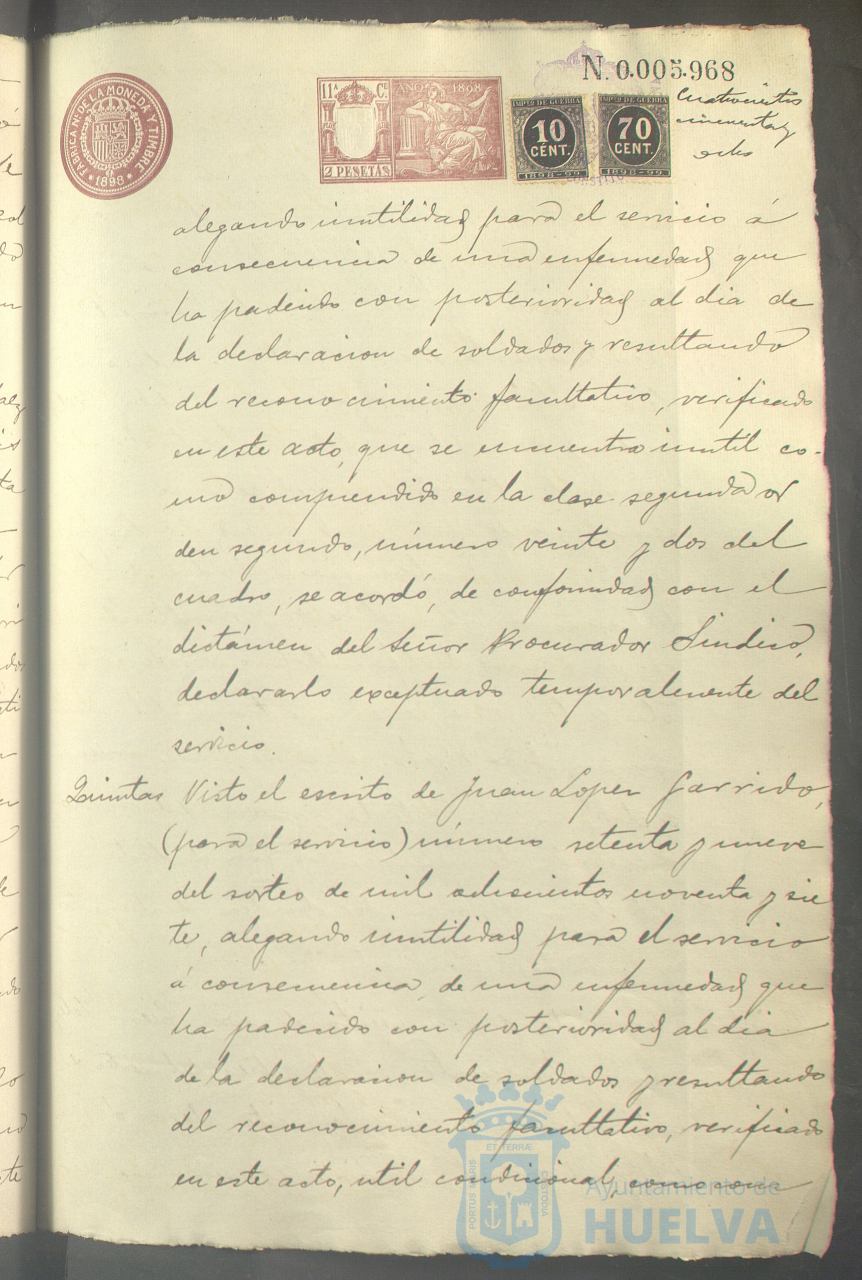 FABRICA Nal DE LA MONEDA Y TIMBRE
* 1898 *
11ª Ce
AÑO 1898
2 PESETAS
IMPTO DE GUERRA
10
CÉNT.
1898-99
IMPTO DE GUERRA
70
CENT.
1898-99
N. 0.005.968
Cuatrocientos
cincuenta y
ocho
alegando inutilidad para el servicio á
consecuencia de una enfermedad que
ha padecido con posterioridad al dia de
la declaracion de soldados y resultando
del reconocimiento facultativo, verificado
en este acto, que se encuentra inutil co-
mo comprendido en la clase segunda or
den segundo, número veinte y dos del
cuadro, se acordó, de conformidad con el
dictámen del Señor Procurador Sindico,
declararlo exceptuado temporalmente del
servicio.
Quintas Visto el escrito de Juan Lopez Garrido,
(para el servicio) número setenta y nueve
del sorteo de mil ochocientos noventa y sie
te, alegando inutilidad para el servicio
á consecuencia de una enfermedad que
ha padecido con posterioridad al dia
de la declaracion de soldados y resultando
del reconocimiento facultativo, verificado
en este acto, util condicional, como com
PORTUS MARIS ET TERRÆ CUSTODIA
Ayuntamiento de
HUELVA